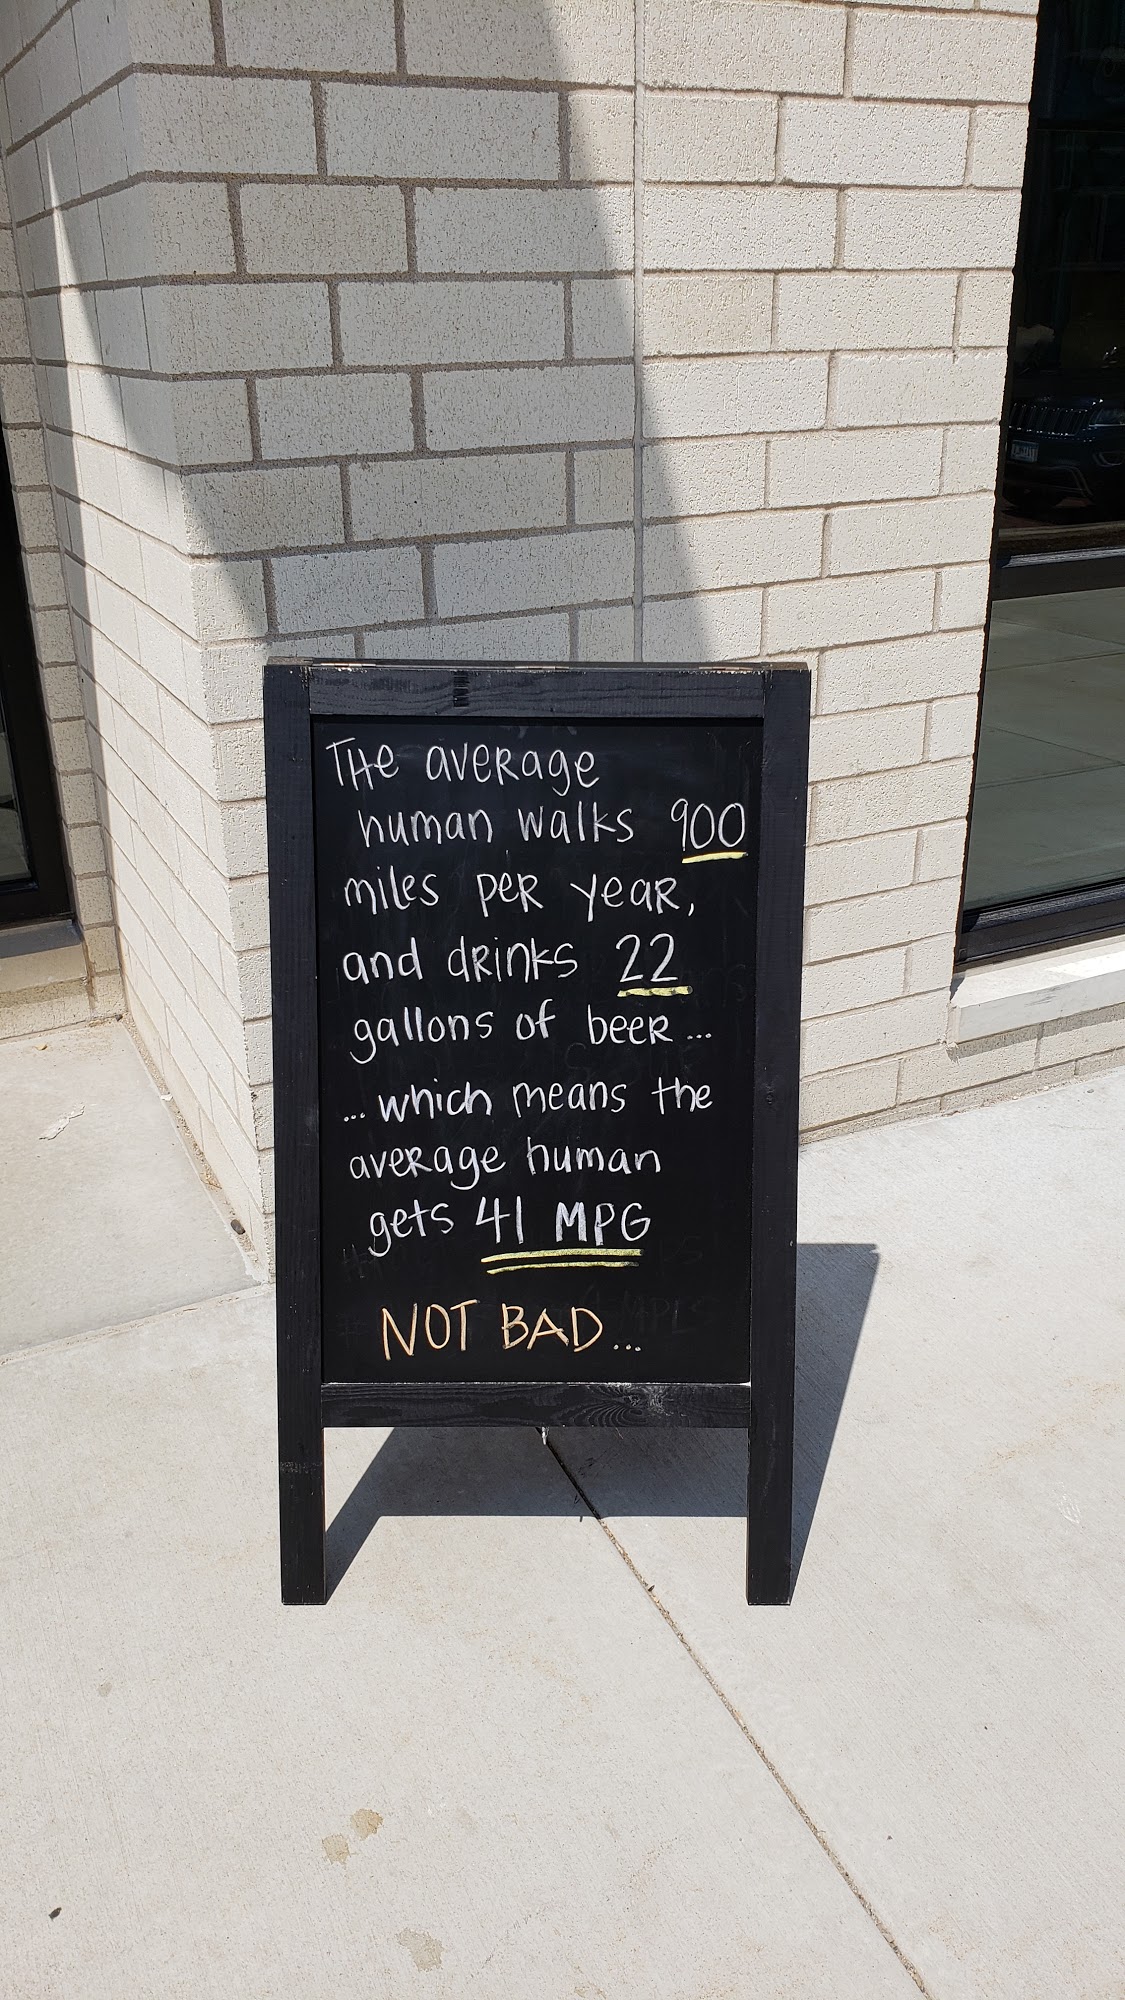 THe aveRage
human walks 900
miles peR yeaR,
and dRinks 22
gallons of beeR...
...which means the
aveRage human
gets 41 MPG
NOT BAD...